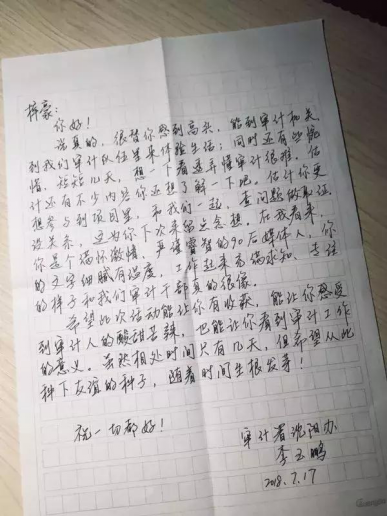 梓豪：
你好！
说真的，很替你感到高兴，能到审计机关，
到我们审计队伍里来体验生活；同时还有些惋
惜，短短几天，想一下看透弄懂审计很难，估
计还有不少内容你还想了解一下吧。估计你更
想参与到项目里，和我们一起，查问题做取证，
没关系，这为你下次来留点念想。在我看来，
你是个满怀激情，严谨睿智的90后媒体人，你
的文字细腻有温度，工作起来高满求知、专注
的样子和我们审计干部真的很像。
希望此次活动能让你有收获，能让你感受
到审计人的酸甜苦辣，也能让你看到审计工作
的意义。虽然相处时间只有几天，但希望从此
种下友谊的种子，随着时间生根发芽！
祝一切都好！
审计署沈阳办
李玉鹏
2018.7.17